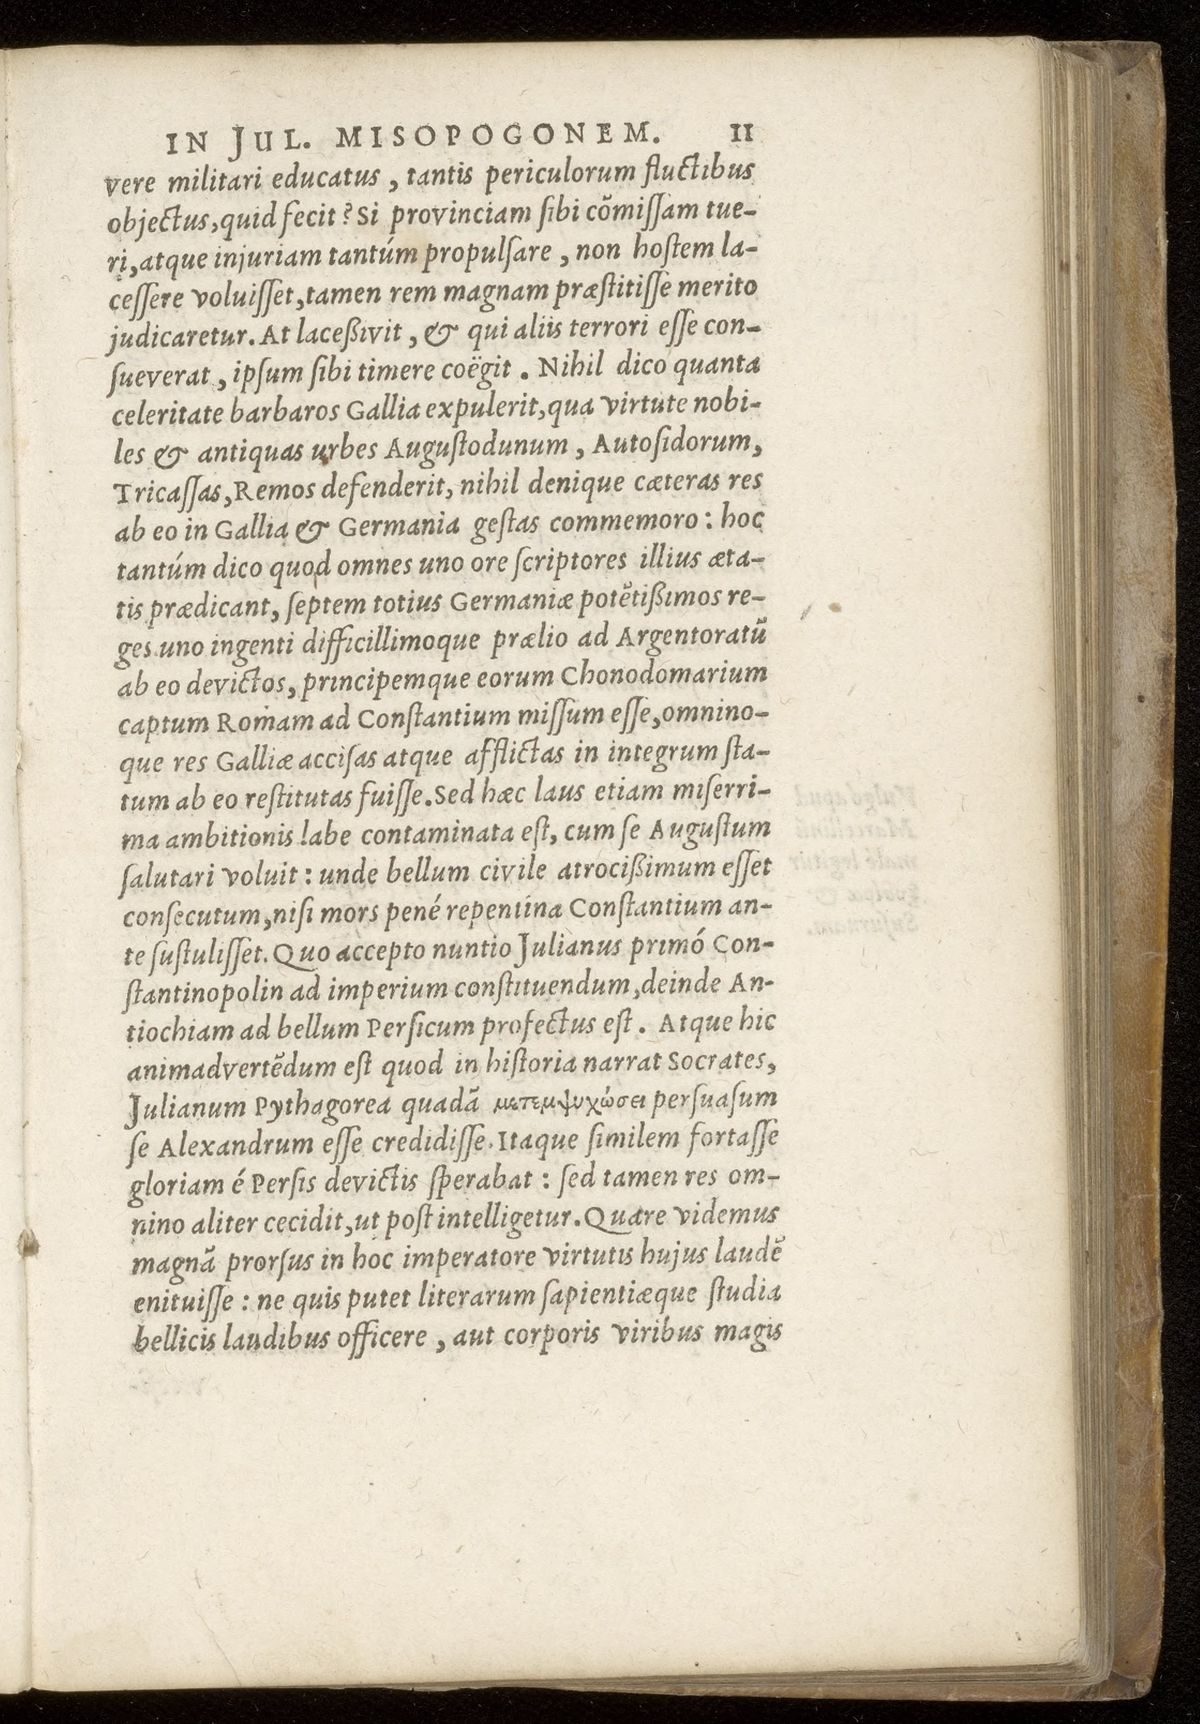 IN JUL. MISOPOGONEM. 11
vere militari educatus, tantis periculorum fluctibus
objectus, quid fecit? Si provinciam sibi cõmissam tue-
ri, atque injuriam tantúm propulsare, non hostem la-
cessere voluisset, tamen rem magnam præstitisse merito
judicaretur. At laceßivit, & qui aliis terrori esse con-
sueverat, ipsum sibi timere coëgit. Nihil dico quanta
celeritate barbaros Gallia expulerit, qua virtute nobi-
les & antiquas urbes Augustodunum, Autosidorum,
Tricassas, Remos defenderit, nihil denique cæteras res
ab eo in Gallia & Germania gestas commemoro: hoc
tantúm dico quod omnes uno ore scriptores illius æta-
tis prædicant, septem totius Germaniæ potẽtißimos re-
ges uno ingenti difficillimoque prælio ad Argentoratũ
ab eo devictos, principemque eorum Chonodomarium
captum Romam ad Constantium missum esse, omnino-
que res Galliæ accisas atque afflictas in integrum sta-
tum ab eo restitutas fuisse. Sed hæc laus etiam miserri-
ma ambitionis labe contaminata est, cum se Augustum
salutari voluit: unde bellum civile atrocißimum esset
consecutum, nisi mors pené repentina Constantium an-
te sustulisset. Quo accepto nuntio Julianus primó Con-
stantinopolin ad imperium constituendum, deinde An-
tiochiam ad bellum Persicum profectus est. Atque hic
animadvertẽdum est quod in historia narrat Socrates,
Julianum Pythagorea quadã μετεμψυχώσει persuasum
se Alexandrum esse credidisse. Itaque similem fortasse
gloriam é Persis devictis sperabat: sed tamen res om-
nino aliter cecidit, ut post intelligetur. Quare videmus
magnã prorsus in hoc imperatore virtutis hujus laudẽ
enituisse: ne quis putet literarum sapientiæque studia
bellicis laudibus officere, aut corporis viribus magis